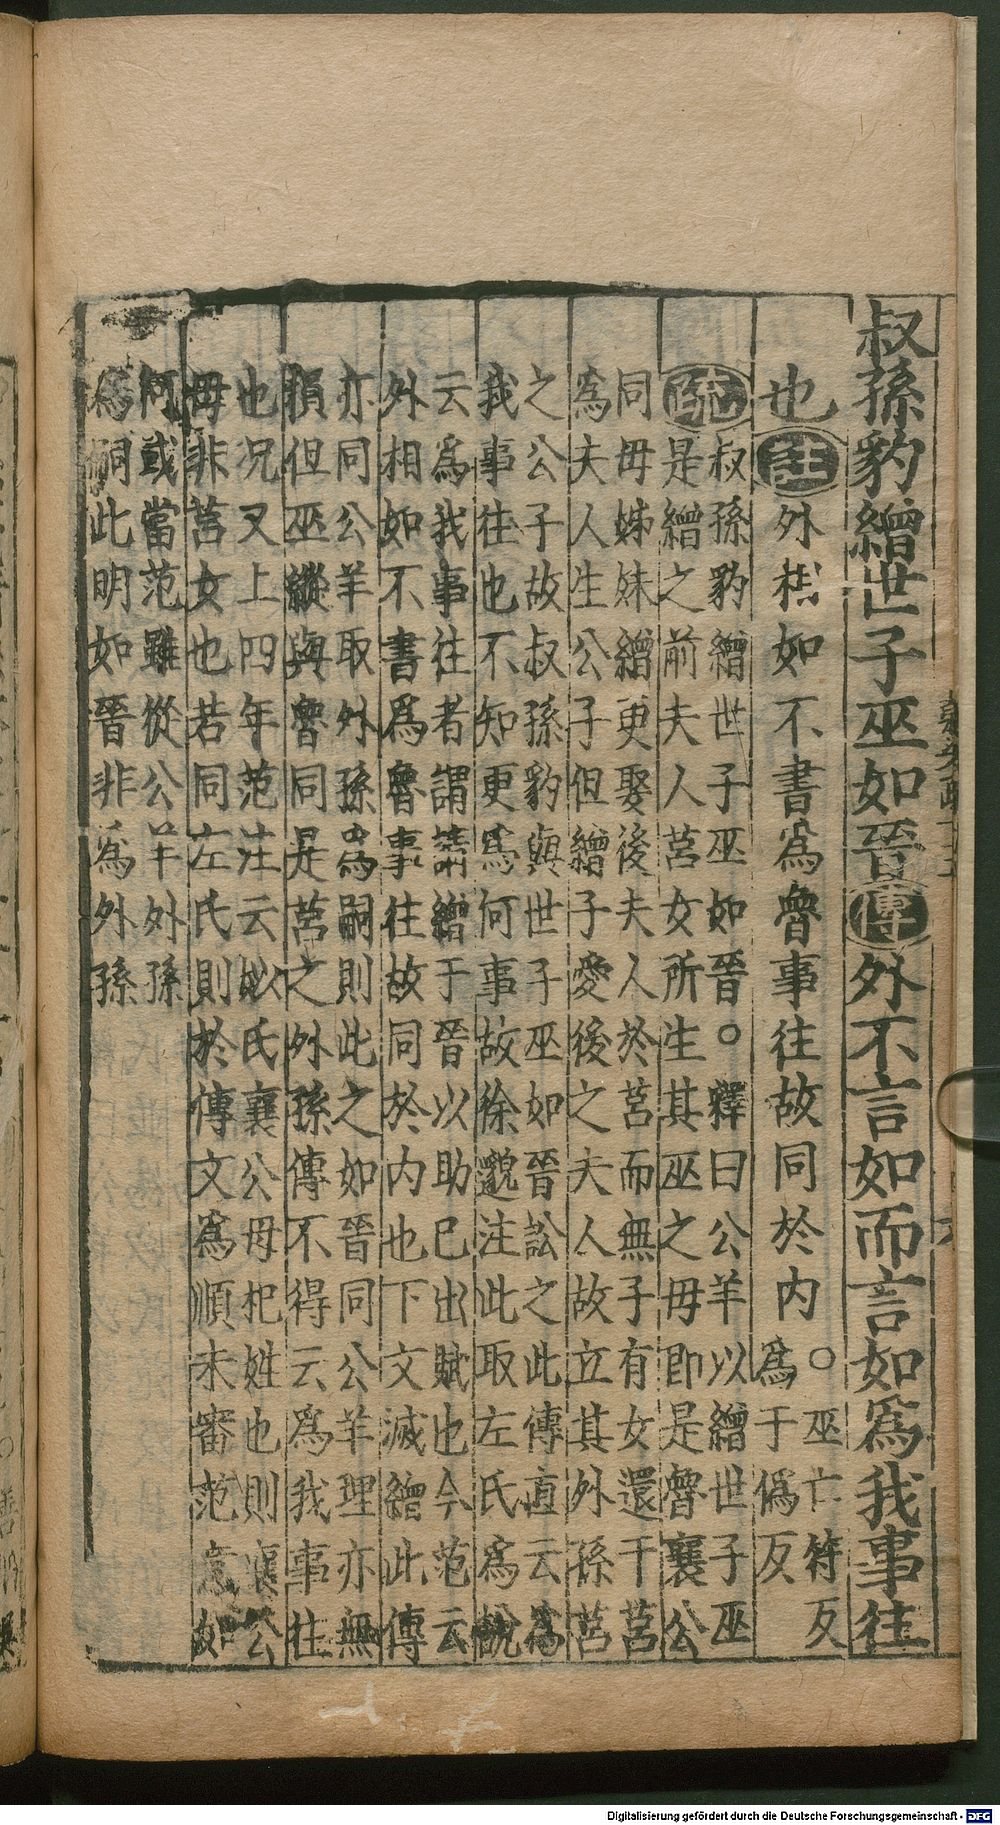 叔孫豹繒世子巫如晉傳外不言如而言如爲我事往
也註外相如不書爲魯事往故同於内○巫亡符反
爲于僞反
疏叔孫豹繒世子巫如晉○釋曰公羊以繒世子巫
是繒之前夫人莒女所生其巫之毋即是魯襄公
同毋姊妹繒更娶後夫人於莒而無子有女還于莒
爲夫人生公子但繒子愛後之夫人故立其外孫莒
之公子故叔孫豹與世子巫如晉訟之此傳直云爲
我事往也不知更爲何事故徐邈注此取左氏爲說
云爲我事往者謂請繒于晉以助已出賦也今范云
外相如不書爲魯事往故同於内也下文滅繒此傳
亦同公羊取外孫爲嗣則此之如晉同公羊理亦無
損但巫縱與魯同是莒之外孫傳不得云爲我事往
也况又上四年范注云姒氏襄公毋杞姓也則襄公
毋非莒女也若同左氏則於傳文爲順未審范意如
何或當范雖從公羊外孫
爲嗣此明如晉非爲外孫
Digitalisierung gefördert durch die Deutsche Forschungsgemeinschaft - DFG